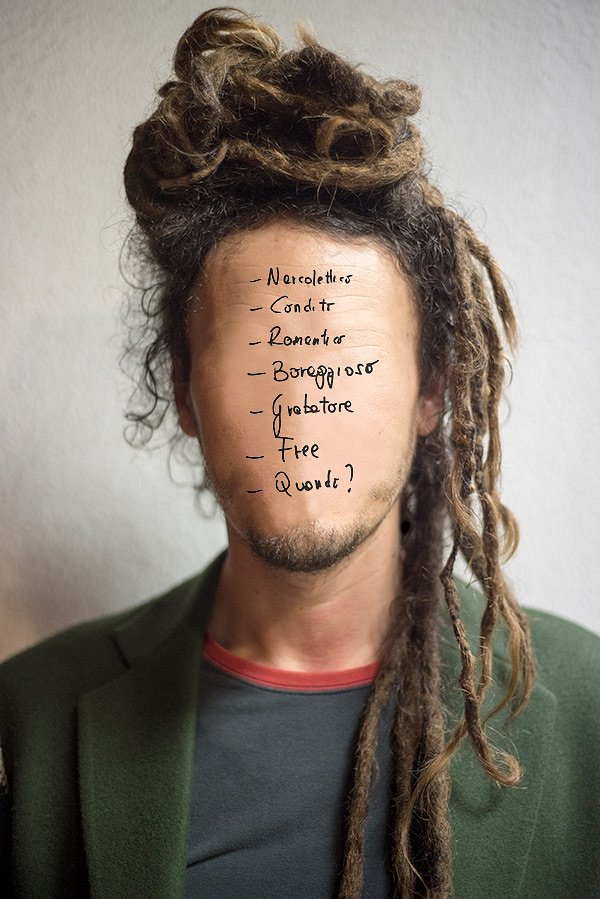 - Narcolettico
- Condito
- Romantico
- Boreggioso
- Grabatore
- Free
- Quando?